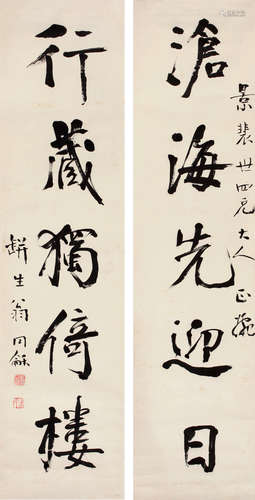 景裴世四兄大人正腕
滄海先迎日
行藏獨倚樓
缾生翁同龢